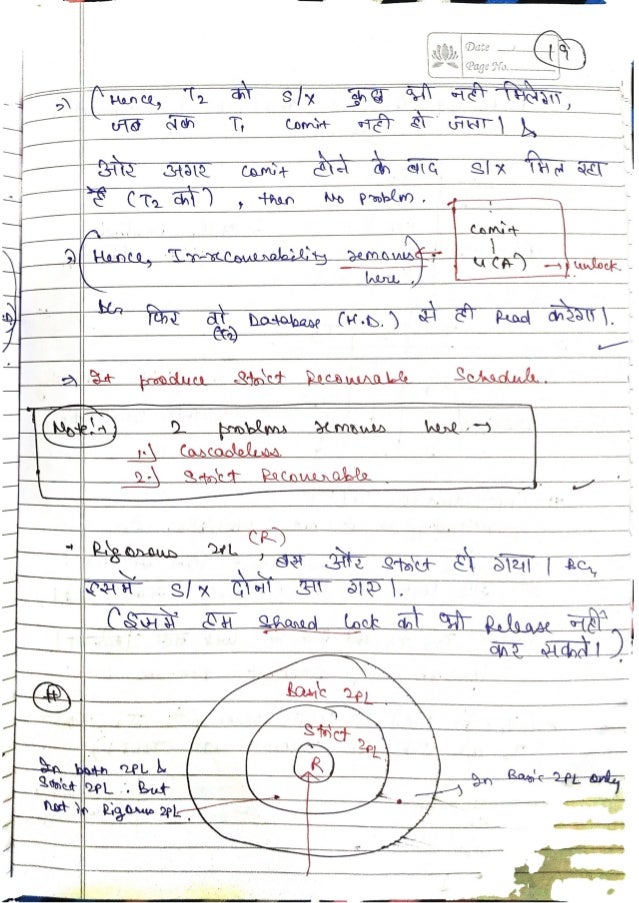 Date
19
Page No.
=) (Hence, T2 को S/X कुछ भी नही मिलेगा,
जब तक T1 comit नही हो जाता। &
और अगर comit होने के बाद S/X मिल रहा
है (T2 को), then No problm.
comit
|
U(A) → unlock
=) (Hence, Irrecoverability removes
here.)
फिर वो Database (H.D.) से ही Read करेगा।.
(T2)
=) It produce Strict Recoverable Schedule.
Note:→ 2 problems removes here. →
1.) Cascadeless
2.) Strict Recoverable
→ Rigorous 2PL (R), बस और strict हो गया। BCZ
इसमें S/X दोनों आ गए।.
(इसमें हम Shared Lock को भी Release नहीं
कर सकते।)
#
Basic 2PL
Strict 2PL
R
In both 2PL &
Strict 2PL. But
not in Rigorous 2PL.
→ In Basic 2PL only